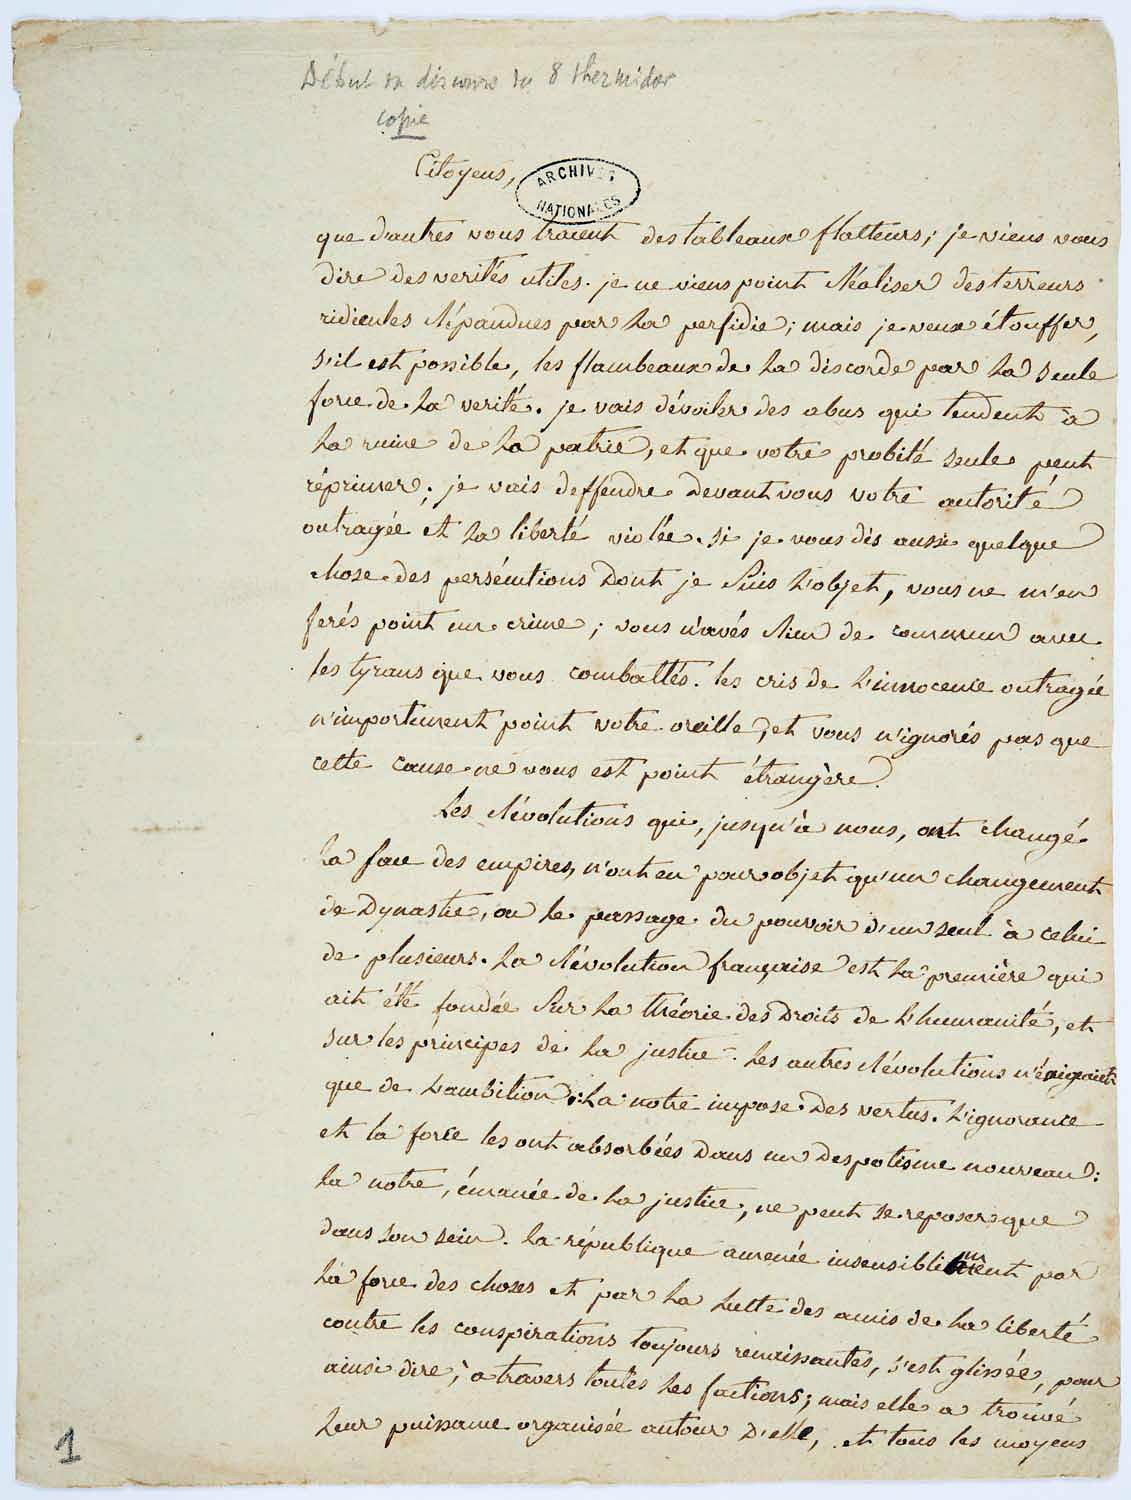 Début du discours du 8 thermidor
copie
Citoyens,
ARCHIVES
NATIONALES
que d'autres vous tracent des tableaux flatteurs; je viens vous
dire des verités utiles. je ne viens point réaliser des terreurs
ridicules répandues par la perfidie; mais je veux étouffer,
s'il est possible, les flambeaux de la discorde par la seule
force de la verité. je vais dévoiler des abus qui tendent à
la ruine de la patrie, et que votre probité seule peut
réprimer; je vais deffendre devant vous votre autorité
outragée et la liberté violée. si je vous dis aussi quelque
chose des persécutions dont je suis l'objet, vous ne m'en
ferés point un crime; vous n'avés rien de commun avec
les tyrans que vous combattés. les cris de l'innocence outragée
n'importunent point votre oreille, et vous n'ignorés pas que
cette cause ne vous est point étrangère.
Les révolutions qui, jusqu'à nous, ont changé
la face des empires, n'ont eu pour objet qu'un changement
de Dynastie, ou le passage du pouvoir d'un seul à celui
de plusieurs. la révolution française est la première qui
ait été fondée sur la théorie des Droits de l'humanité, et
sur les principes de la justice. les autres révolutions n'éxigeaient
que de l'ambition: la notre impose des vertus. L'ignorance
et la force les ont absorbées dans un despotisme nouveau:
la notre, émanée de la justice, ne peut se reposer que
dans son sein. la république amenée insensiblement par
la force des choses et par la lutte des amis de la liberté
contre les conspirations toujours renaissantes, s'est glissée, pour
ainsi dire, à travers toutes les factions; mais elle a trouvé
leur puissance organisée autour d'elle, et tous les moyens
1